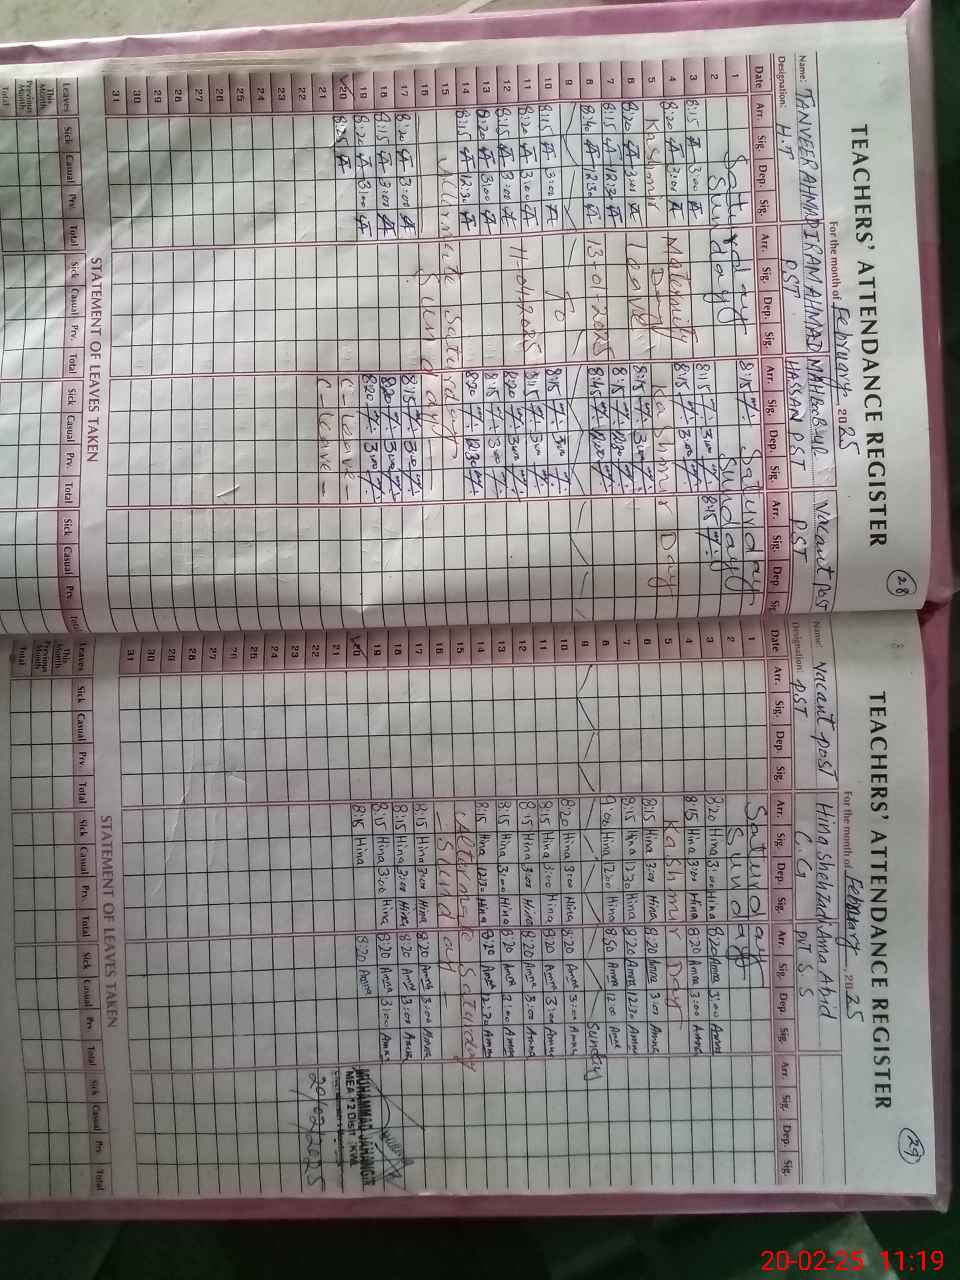 TEACHERS' ATTENDANCE REGISTER
28
For the month of February 2025
Name: TANVEER AHMAD IRAM AHMAD MAHBOOB UR Vacant Post
Designation: H.T PST HASSAN PST PST
Date Arr. Sig. Dep. Sig. Arr. Sig. Dep. Sig. Arr. Sig. Dep. Sig. Arr. Sig. Dep. Sig.
1 Saturday 8:15 Saturday
2 Sunday Sunday
3 8:15 3:00 8:15 3:00 8:45
4 8:20 3:00 Maternity 8:15 3:00
5 Kashmir Day Kashmir Day
6 8:20 3:00 Leave 8:15 3:00
7 8:15 12:30 8:15 12:30
8 8:40 12:30 13-01-2025 8:45 12:00
9
10 8:15 3:00 To 8:15 3:00
11 8:20 3:00 11-04-2025 8:15 3:00
12 8:15 3:00 8:20 3:00
13 8:20 3:00 8:15 3:00
14 8:15 12:30 8:20 12:30
15 Alternate Saturday
16 Sunday
17 8:20 3:00 8:15 3:00
18 8:15 3:00 8:20 3:00
19 8:20 3:00 8:20 3:00
20 8:25 C-Leave
21 C-Leave
22
23
24
25
26
27
28
29
30
31
STATEMENT OF LEAVES TAKEN
Leaves Sick Casual Prv. Total Sick Casual Prv. Total Sick Casual Prv. Total Sick Casual Prv. Total
This Month
Previous Month
Total
TEACHERS' ATTENDANCE REGISTER
29
For the month of February 2025
Name: Vacant post Hina Shehzadi Amna Abid
Designation: PST C.G S.S
Date Arr. Sig. Dep. Sig. Arr. Sig. Dep. Sig. Arr. Sig. Dep. Sig. Arr. Sig. Dep. Sig.
1 Saturday
2 Sunday
3 8:20 Hina 3:00 Hina 8:20 Amna 3:00 Amna
4 8:15 Hina 3:00 Hina 8:20 Amna 3:00 Amna
5 Kashmir Day
6 8:15 Hina 3:00 Hina 8:20 Amna 3:00 Amna
7 8:15 Hina 12:30 Hina 8:20 Amna 12:30 Amna
8 9:00 Hina 12:00 Hina 8:50 Amna 12:00 Amna
9 Sunday
10 8:20 Hina 3:00 Hina 8:20 Amna 3:00 Amna
11 8:15 Hina 3:00 Hina 8:20 Amna 3:00 Amna
12 8:15 Hina 3:00 Hina 8:20 Amna 3:00 Amna
13 8:15 Hina 3:00 Hina 8:20 Amna 3:00 Amna
14 8:15 Hina 12:30 Hina 8:20 Amna 12:30 Amna
15 Alternate Saturday
16 Sunday
17 8:15 Hina 3:00 Hina 8:20 Amna 3:00 Amna
18 8:15 Hina 3:00 Hina 8:20 Amna 3:00 Amna
19 8:15 Hina 3:00 Hina 8:20 Amna 3:00 Amna
20 8:15 Hina 8:20 Amna
21
22
23
24
25
26
27
28
29
30
31
MUHAMMAD JAHANGIR
MEA # 2 Distt: KWL
20/02/2025
STATEMENT OF LEAVES TAKEN
Leaves Sick Casual Prv. Total Sick Casual Prv. Total Sick Casual Prv. Total Sick Casual Prv. Total
This Month
Previous Month
Total
20-02-25 11:19